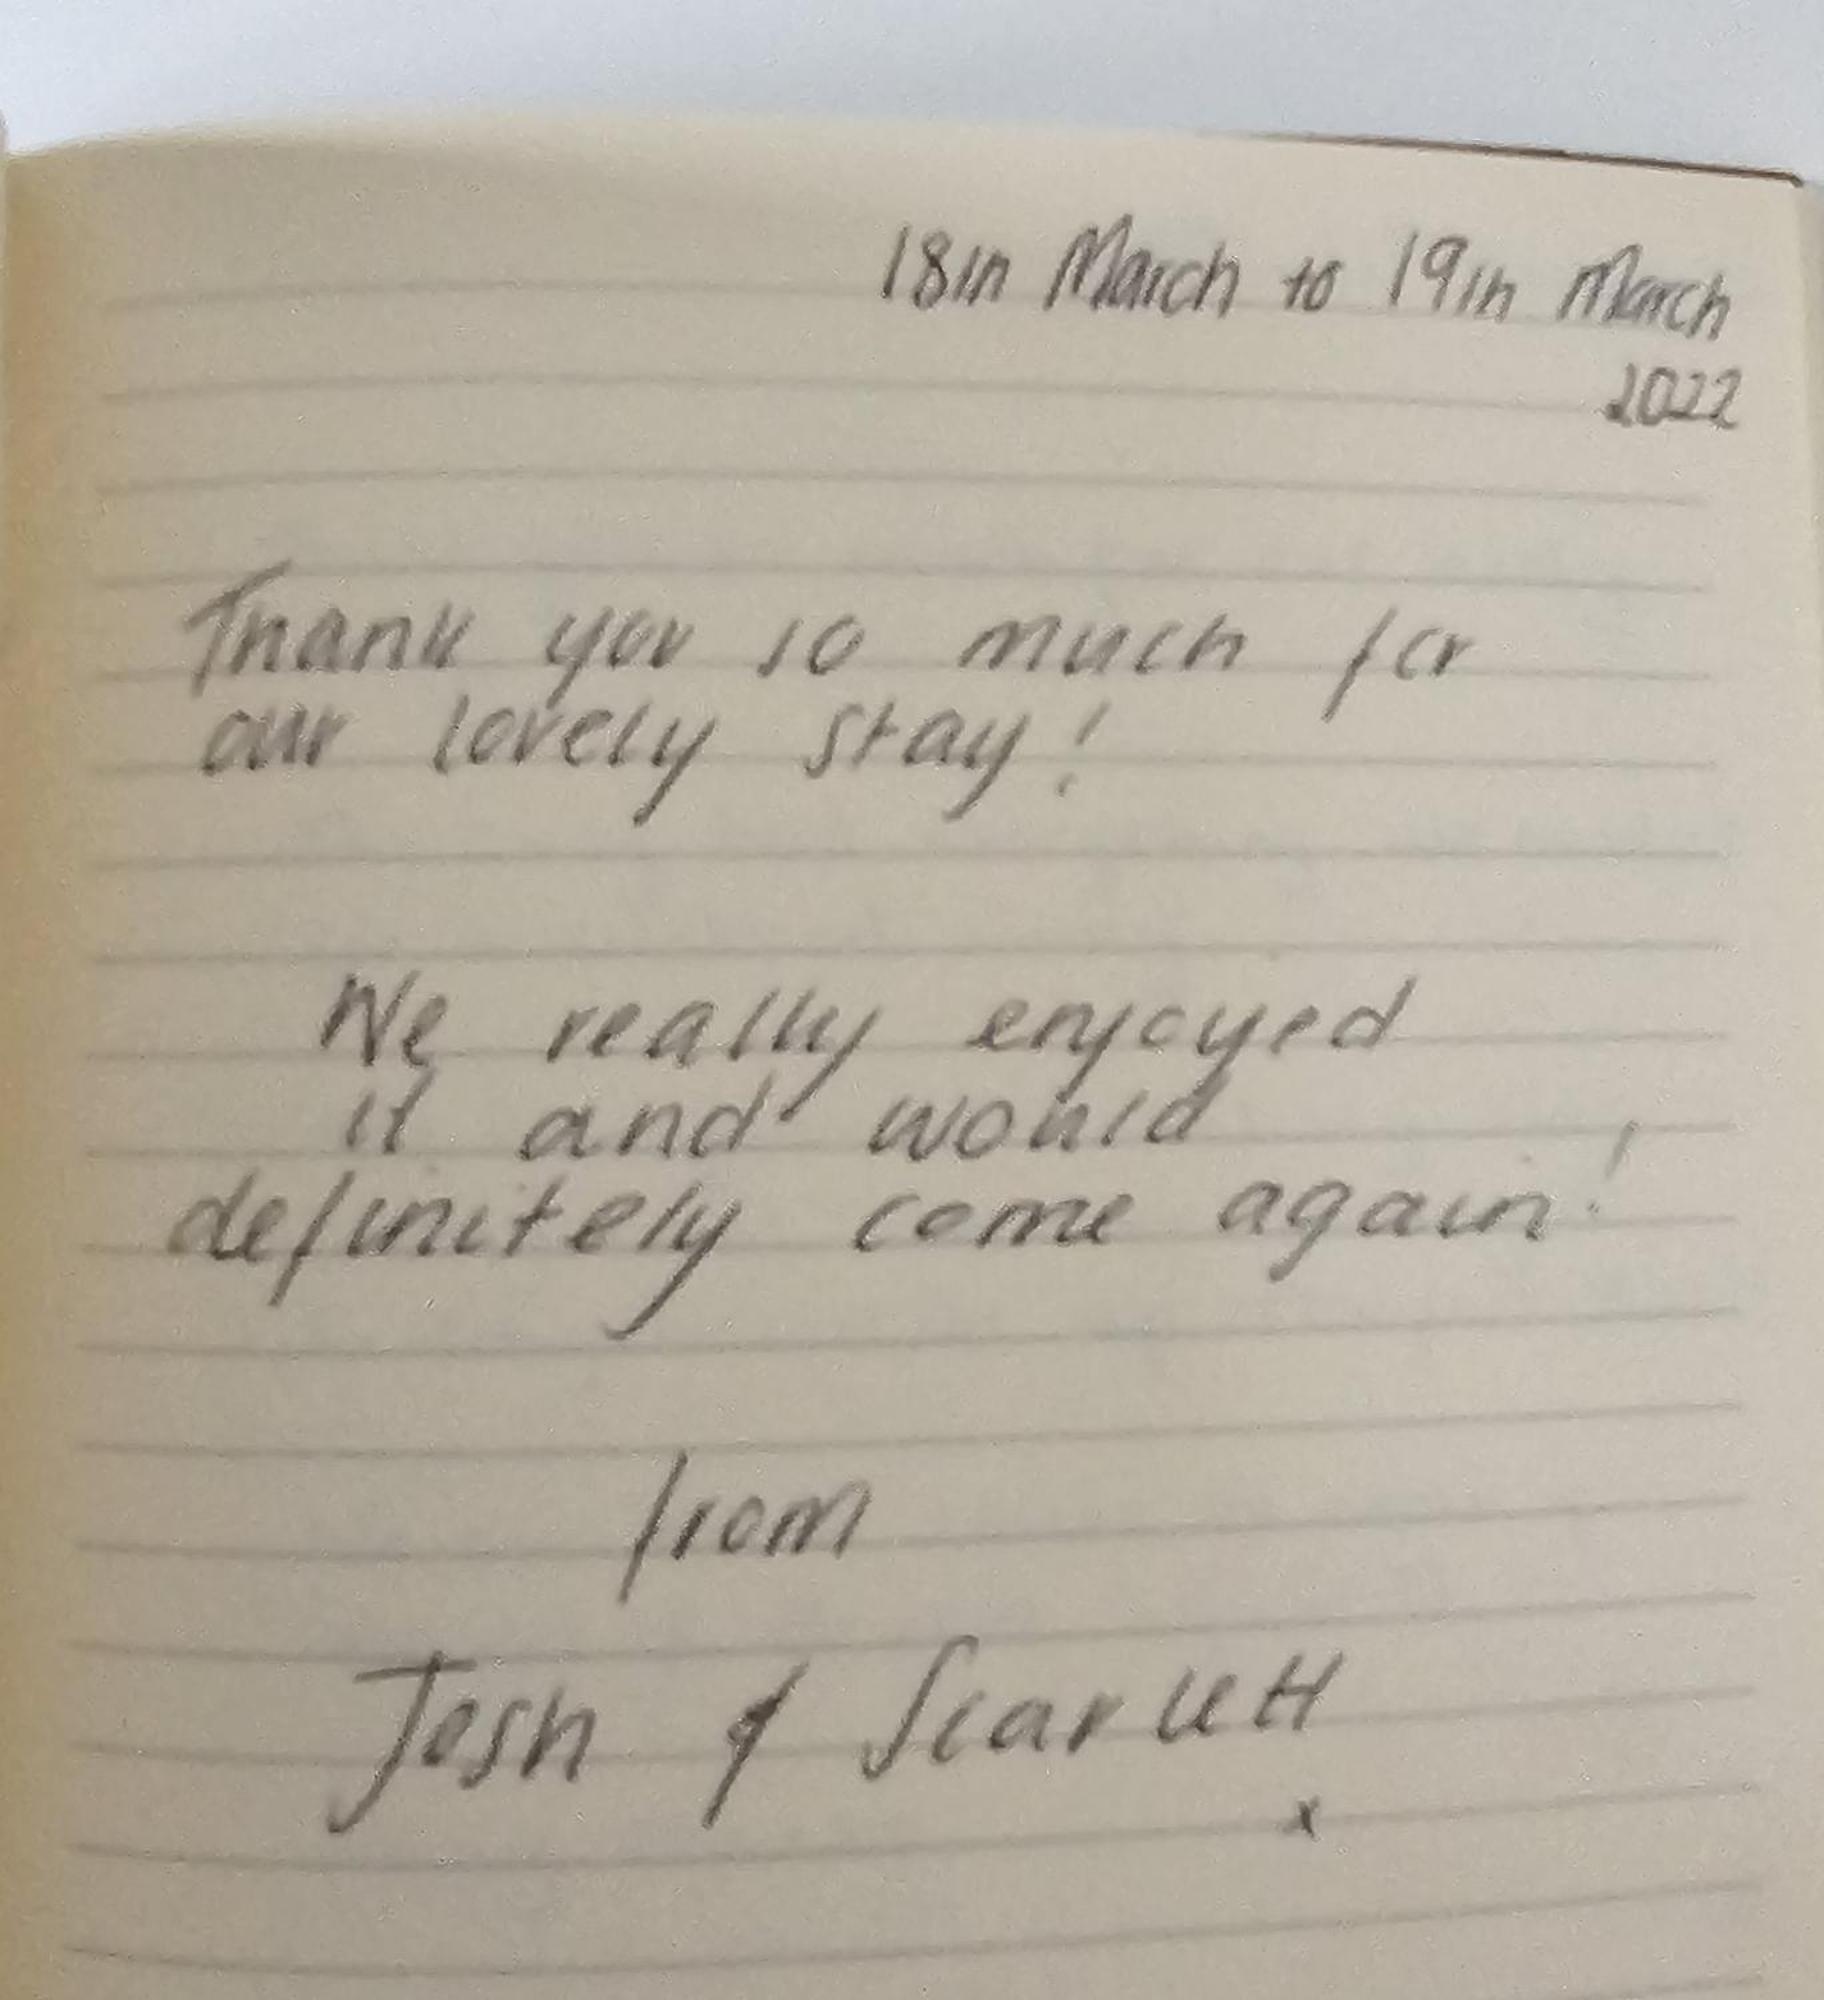 18th March to 19th March
2022
Thank you so much for
our lovely stay!
We really enjoyed
it and would
definitely come again!
from
Josh & Scarlett
x